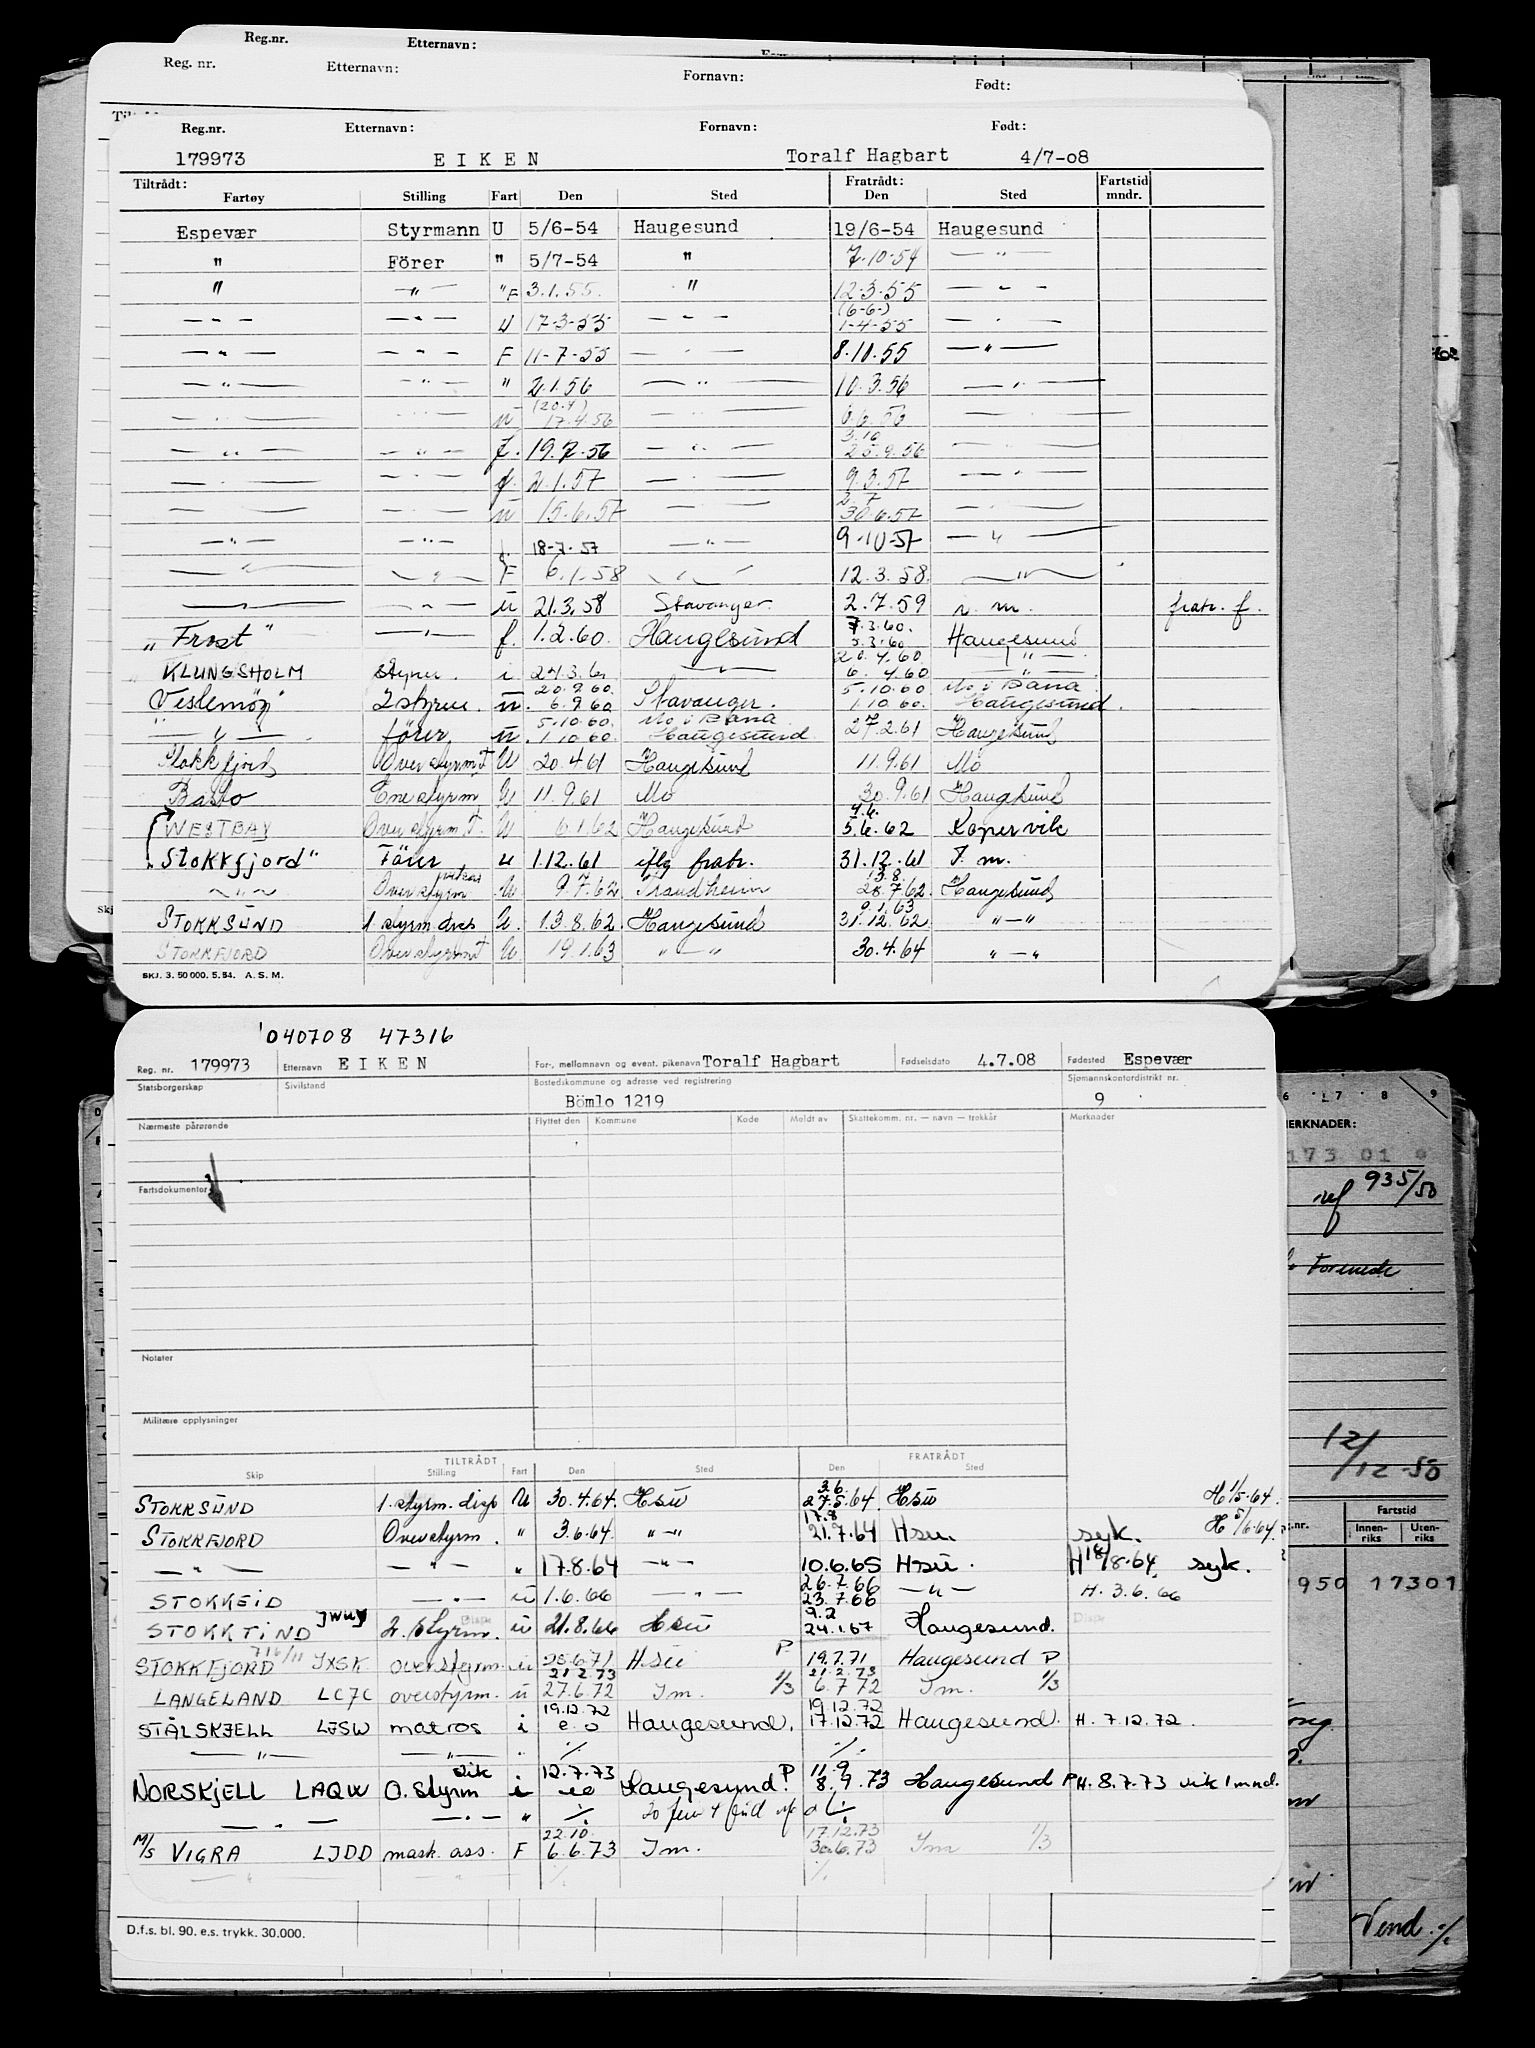 Reg.nr. Etternavn:
Reg. nr. Etternavn: Fornavn: Født:
Reg.nr. Etternavn: Fornavn: Født:
179973 EIKEN Toralf Hagbart 4/7-08
Tiltrådt: Fratrådt: Fartstid
Fartøy Stilling Fart Den Sted Den Sted mndr.
Espevær Styrmann U 5/6-54 Haugesund 19/6-54 Haugesund
" Förer " 5/7-54 " 7.10-54 — " —
" —"— "F 3.1.55. " 12.3.55 — " —
(6-6-)
— " — — " — U 17-3-55 — " — 1-4-55 — " —
— " — — " — F 11-7-55 — " — 8.10.55 — " —
— " — — " — " 2.1.56 — " — 10.3.56 — " —
(20.4)
— " — — " — u 17.4.56 — " — 6.6.56 — " —
3.10
— " — — " — f. 19.7.56 — " — 25.9.56 — " —
— " — — " — f 2.1.57 — " — 9.3.57 — " —
2.7
— " — — " — u 15.6.57 — " — 30.6.57 — " —
— " — — " — f. 18-7-57 — " — 9-10-57 — " —
— " — — " — F 6.1.58 — " — 12.3.58. — " —
— " — — " — u 21.3.58 Stavanger. 2.7.59 n. m. fratr. f.
7.3.60.
„Frost" — " — f. 1.2.60. Haugesund 5.3.60 Haugesund
20.4.60
KLUNGSHOLM styrm. i 24.3.60 — " — 6.4.60 — " —
20.9.60 5.10.60 Mo i Rana
Vestemøy 2 styrm. u. 6.9.60 Stavanger. 1.10.60. Haugesund.
5.10.60. Mo i Rana
— " — förer u. 1.10.60. Haugesund 27.2.61 Haugesund
Stokkfjord Overstyrm T U 20.4.61 Haugesund 11.9.61 Mo
Basto Enestyrm U 11.9.61 Mo 30.9.61 Haugesund
4.6.
WESTBAY Overstyrm T. U 6.1.62 Haugesund 5.6.62 Kopervik
„Stokkfjord" Förer u 1.12.61 iflg fratr. 31.12.61 I. m.
13.8.
— " — Overstyrm U. 9.7.62 Trondheim 28.7.62. Haugesund
9.1.63
STOKKSUND 1 styrm dres U. 13.8.62. Haugesund 31.12.62. " — "
STOKKFJORD Overstyrm T U. 19.1.63 " — " 30.4.64 " — "
SKJ. 3. 50 000. 5.54. A.S.M.
'040708 47316
Reg. nr. 179973 Etternavn EIKEN For-, mellomnavn og event. pikenavn Toralf Hagbart Fødselsdato 4.7.08 Fødested Espevær
Statsborgerskap Sivilstand Bostedskommune og adresse ved registrering Sjømannskontordistrikt nr.
Bömlo 1219 9
Nærmeste pårørende Flyttet den Kommune Kode Meldt av Skattekomm. nr. — navn — trekkår Merknader
Fartsdokumenter
Notater
Militære opplysninger
TILTRÅDT FRATRÅDT
Skip Stilling Fart Den Sted Den Sted
3.6.
STOKKSUND 1. styrm. disp U 30.4.64. Hsu 27.5.64. Hsu H 1/5-64.
17.8
STOKKFJORD Overstyrm. " 3.6.64. " — " 21.7.64 Hsu syk. H 5/6-64.
— " — — " — " 17.8.64 — " — 10.6.65 Hsu. H 18/8-64. syk.
26.7.66
STOKKEID — " — u 1.6.66 — " — 23.7.66 — " — H. 3.6.66
9.2
STOKKTIND JWUY 2. styrm. Disp u 21.8.66 Hsu 24.1.67 Haugesund. Disp
716/11
STOKKFJORD JXSK overstyrm. u 25.6.71 Hsu P 19.7.71 Haugesund P
21.2.73 21.2.73
LANGELAND LC7C overstyrm. u 27.6.72 Im. 1/3 6.7.72 Im. 1/3
19.12.72 19.12.72
STÅLSKJELL LJSW matros i e o Haugesund. 17.12.72 Haugesund. H. 7.12.72.
— " — — " — " ·/. ·/.
vik 12.7.73 11.9
NORSKJELL LAQW O. styrm i eo Haugesund P 8.9.73 Haugesund P H. 8.7.73 vik 1 mnd.
— " — — " — " ·/. ·/.
22.10. 17.12.73
M/S VIGRA LJDD mask. ass. F 6.6.73 Im. 30.6.73 Im 1/3
— " — " ·/. ·/.
D.f.s. bl. 90. e.s. trykk. 30.000.
6 7 8 9
MERKNADER:
173 01
935/50
12/12-50
Fartstid
Innenriks Utenriks
1950 17301
Vend ·/.